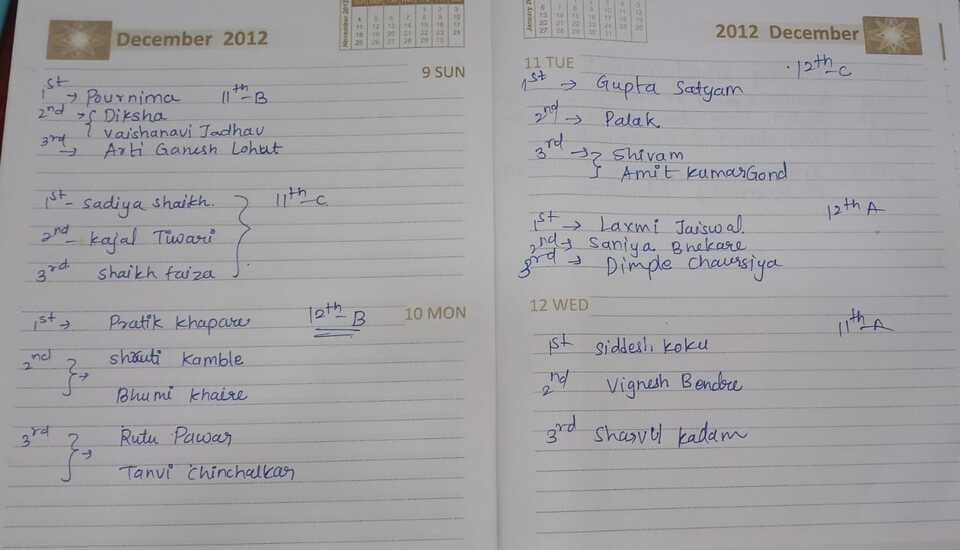 December 2012
November 2012
9 SUN
1st → Pournima 11th-B
2nd → { Diksha
{ Vaishanavi Jadhav
3rd → Arti Ganesh Lohat
1st - Sadiya Shaikh. } 11th-C
2nd - Kajal Tiwari
3rd Shaikh faiza
10 MON
1st → Pratik Khapare 12th-B
2nd } → Shruti Kamble
Bhumi Khaire
3rd } → Rutu Pawar
Tanvi Chinchalkar
2012 December
11 TUE
12th-C
1st → Gupta Satyam
2nd → Palak
3rd → } Shivam
} Amit KumarGond
12th A
1st → Laxmi Jaiswal.
2nd → Saniya Bhekare
3rd → Dimple Chaursiya
12 WED
11th-A
1st Siddesh Koku
2nd Vignesh Bendre
3rd Sharvil Kadam